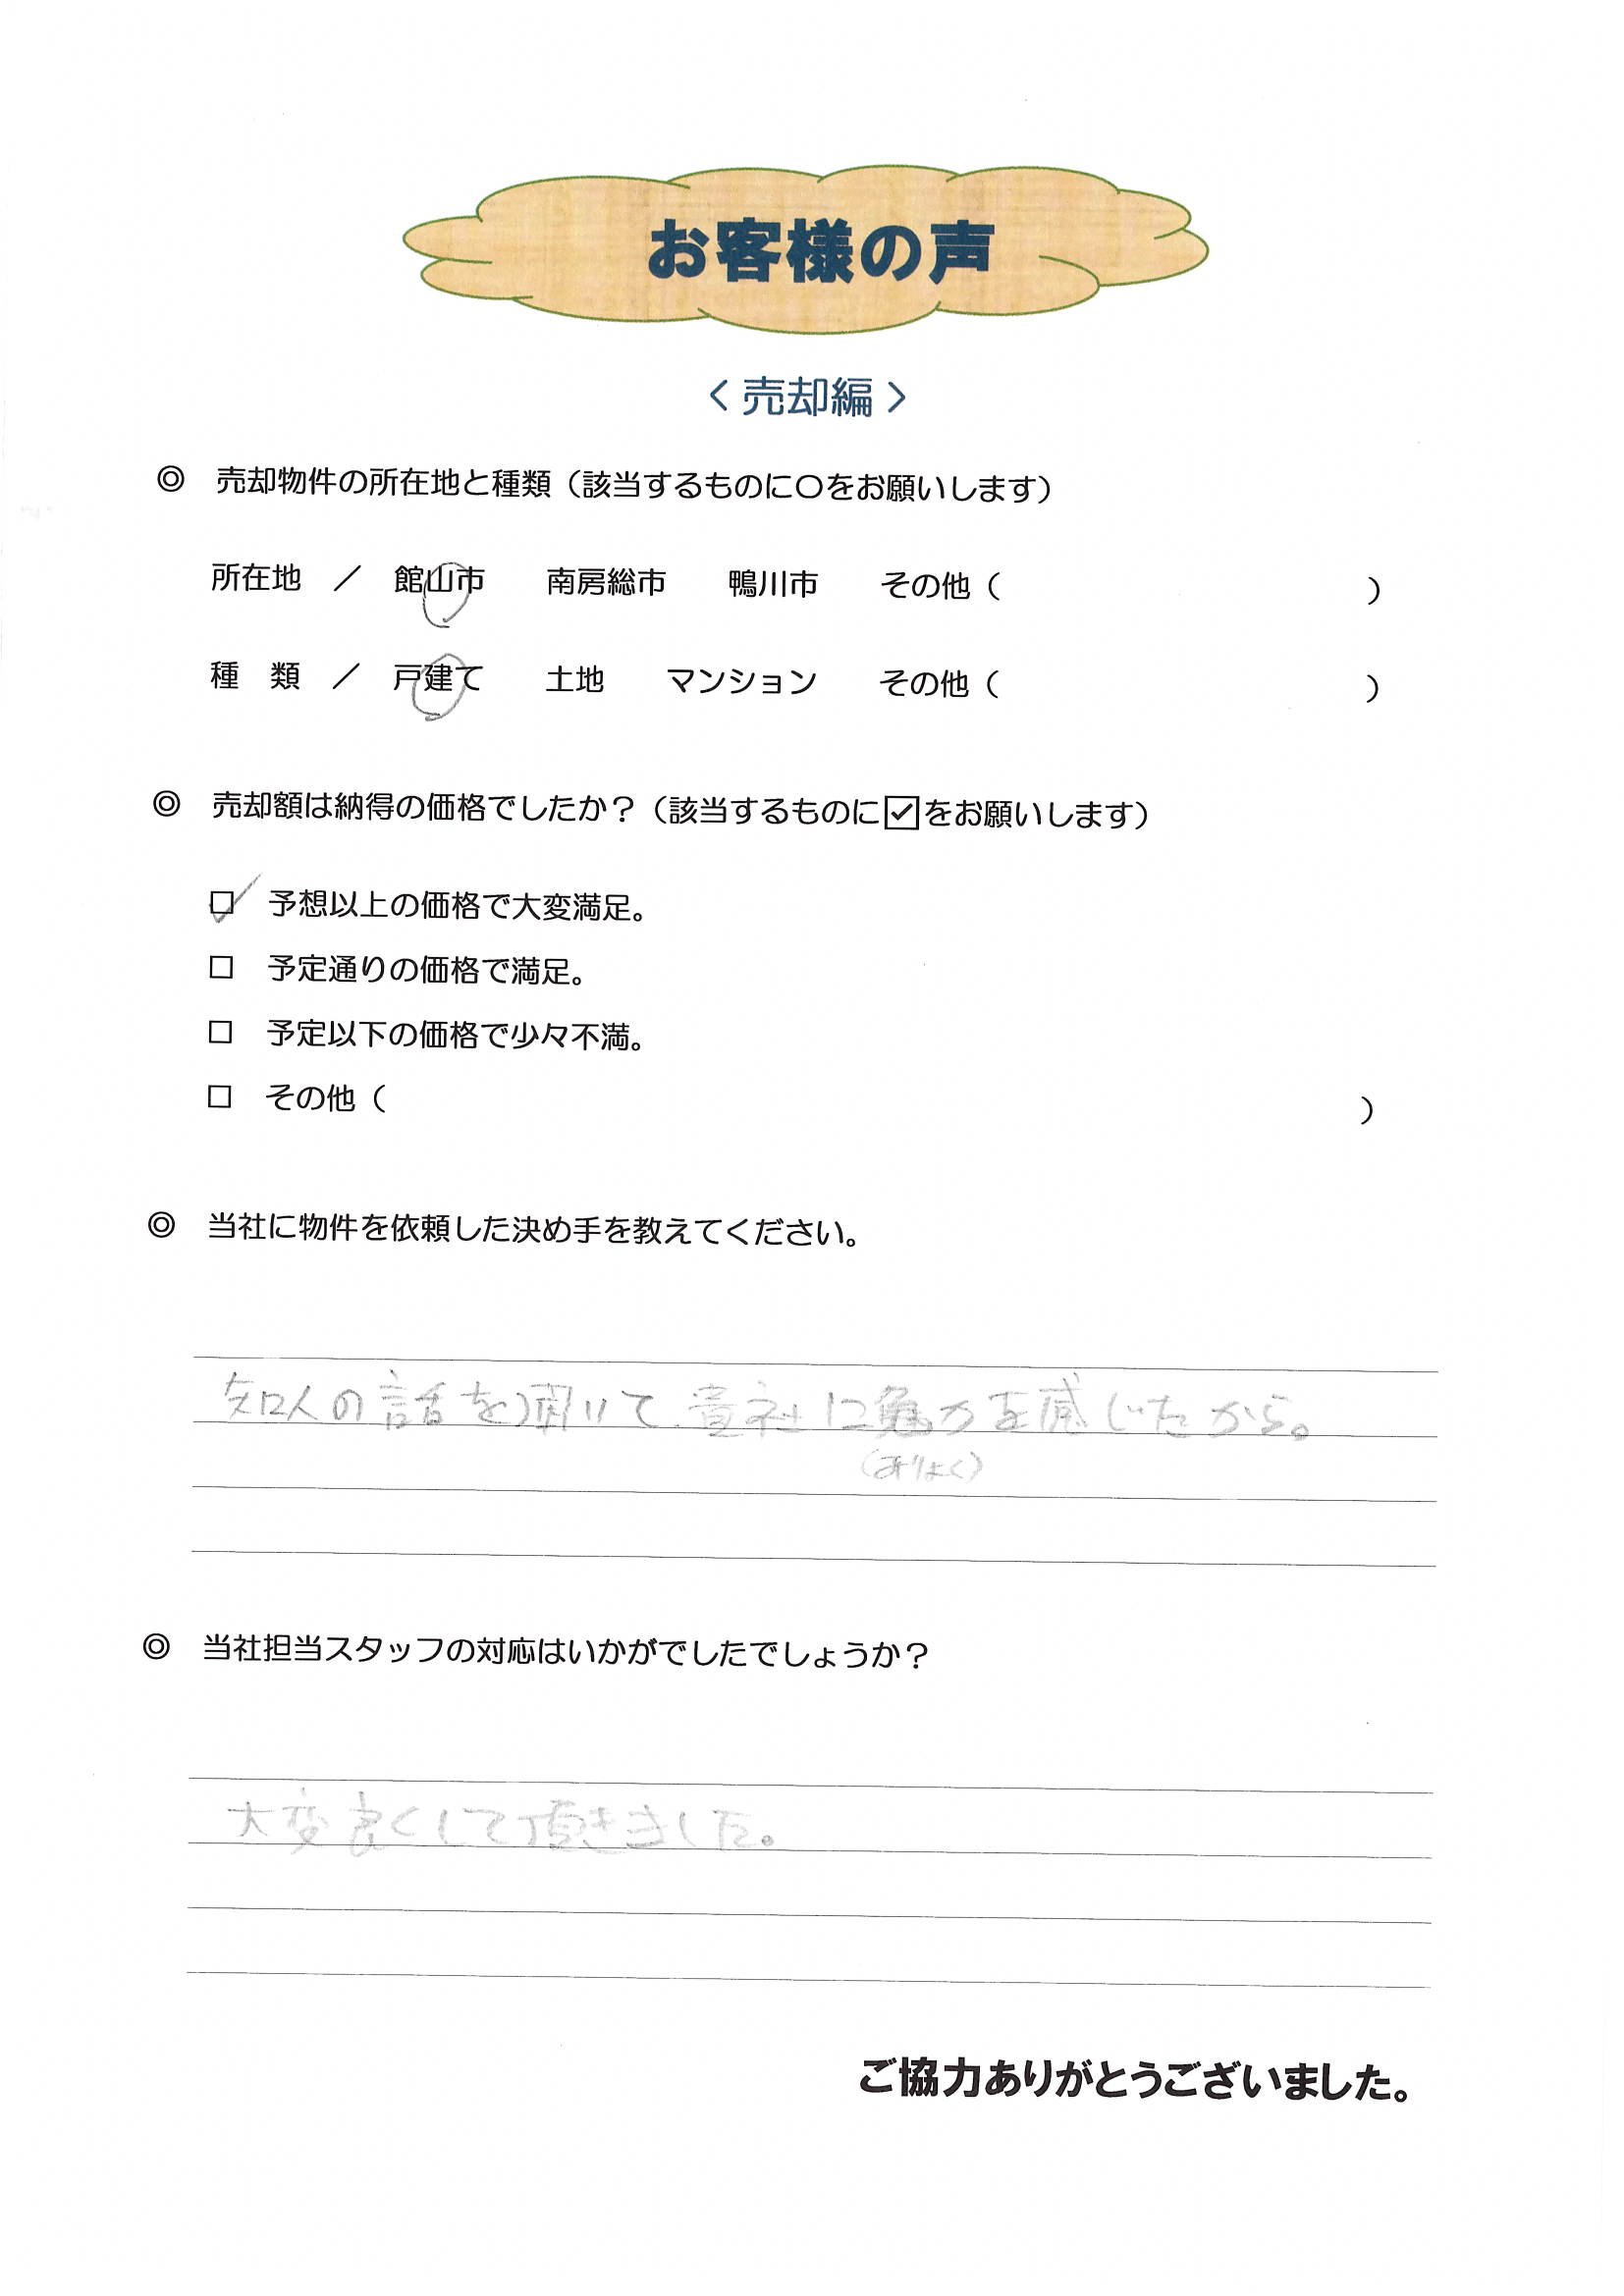 お客様の声
＜売却編＞
◎ 売却物件の所在地と種類（該当するものに〇をお願いします）
所在地 ／ 館山市 南房総市 鴨川市 その他（ ）
種 類 ／ 戸建て 土地 マンション その他（ ）
◎ 売却額は納得の価格でしたか？（該当するものに☑をお願いします）
☑ 予想以上の価格で大変満足。
□ 予定通りの価格で満足。
□ 予定以下の価格で少々不満。
□ その他（ ）
◎ 当社に物件を依頼した決め手を教えてください。
知人の話を聞いて、貴社に魅力を感じたから。
（みりょく）
◎ 当社担当スタッフの対応はいかがでしたでしょうか？
大変良くして頂きました。
ご協力ありがとうございました。